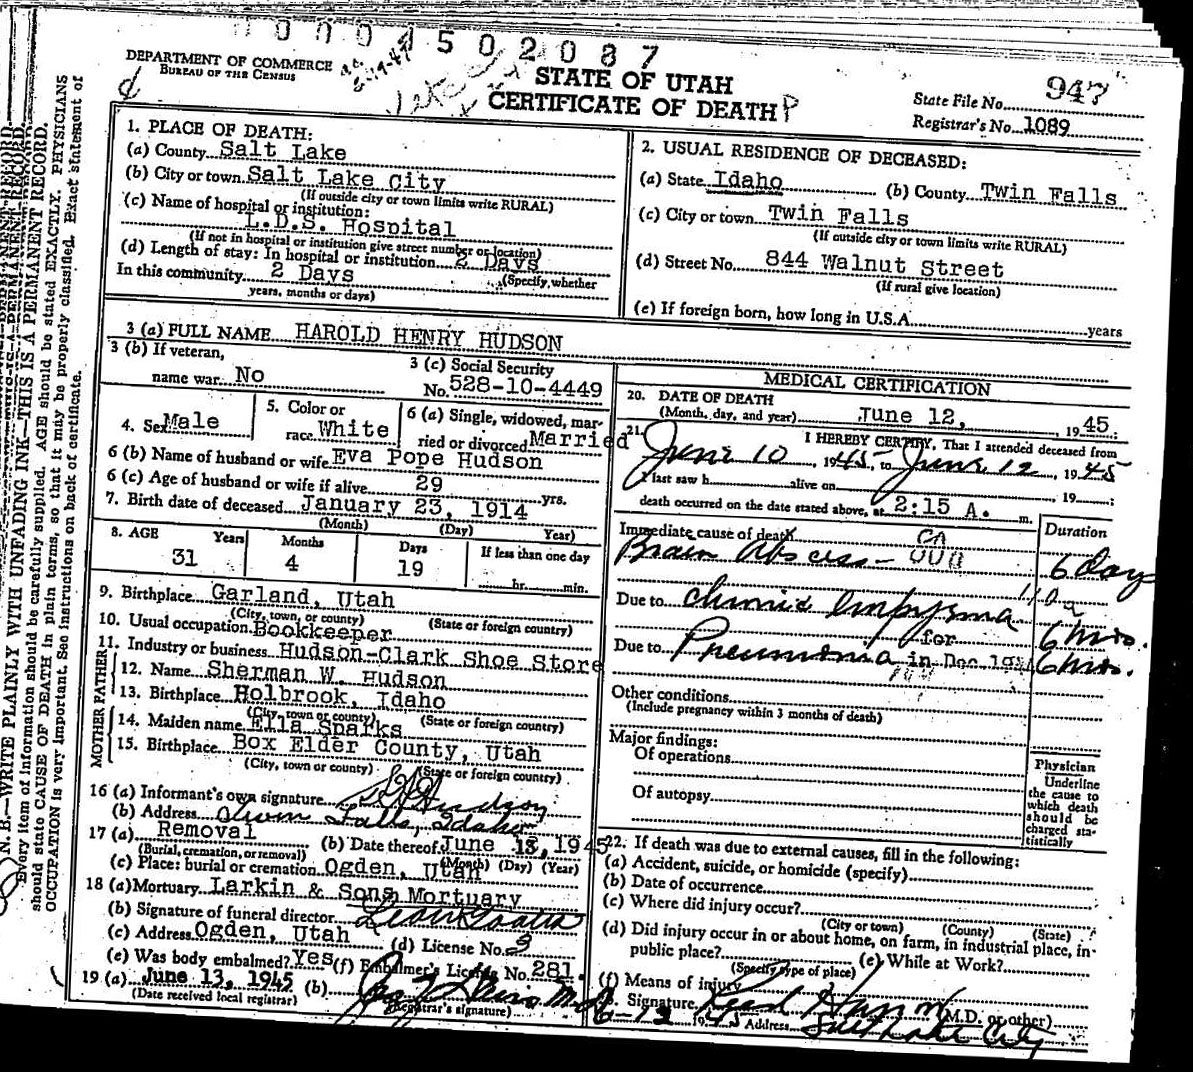 0004502087
DEPARTMENT OF COMMERCE
BUREAU OF THE CENSUS
STATE OF UTAH
CERTIFICATE OF DEATH
State File No. 947
Registrar's No. 1089
1. PLACE OF DEATH:
(a) County Salt Lake
(b) City or town Salt Lake City
(If outside city or town limits write RURAL)
(c) Name of hospital or institution:
L.D.S. Hospital
(If not in hospital or institution give street number or location)
(d) Length of stay: In hospital or institution 2 Days
(Specify whether
In this community 2 Days
years, months or days)
2. USUAL RESIDENCE OF DECEASED:
(a) State Idaho (b) County Twin Falls
(c) City or town Twin Falls
(If outside city or town limits write RURAL)
(d) Street No. 844 Walnut Street
(If rural give location)
(e) If foreign born, how long in U.S.A. years
3 (a) FULL NAME HAROLD HENRY HUDSON
3 (b) If veteran,
name war No
3 (c) Social Security
No. 528-10-4449
4. Sex Male
5. Color or
race White
6 (a) Single, widowed, mar-
ried or divorced Married
6 (b) Name of husband or wife Eva Pope Hudson
6 (c) Age of husband or wife if alive 29 yrs.
7. Birth date of deceased January 23, 1914
(Month) (Day) Year)
8. AGE Years Months Days If less than one day
31 4 19 hr. min.
9. Birthplace Garland, Utah
(City, town, or county) (State or foreign country)
10. Usual occupation Bookkeeper
11. Industry or business Hudson-Clark Shoe Store
FATHER
12. Name Sherman W. Hudson
13. Birthplace Holbrook, Idaho
(City, town or county) (State or foreign country)
MOTHER
14. Maiden name Ella Sparks
15. Birthplace Box Elder County, Utah
(City, town or county) (State or foreign country)
16 (a) Informant's own signature Hudson
(b) Address Twin Falls, Idaho
17 (a) Removal (b) Date thereof June 13, 1945
(Burial, cremation, or removal) (Month) (Day) (Year)
(c) Place: burial or cremation Ogden, Utah
18 (a) Mortuary Larkin & Sons Mortuary
(b) Signature of funeral director
(c) Address Ogden, Utah (d) License No. 3
(e) Was body embalmed? Yes (f) Embalmer's License No. 281
19 (a) June 13, 1945 (b)
(Date received local registrar) (Registrar's signature)
MEDICAL CERTIFICATION
20. DATE OF DEATH
(Month, day, and year) June 12, 1945
21. I HEREBY CERTIFY, That I attended deceased from
June 10, 1945, to June 12, 1945
I last saw h alive on 19 ;
death occurred on the date stated above, at 2:15 A. m.
Immediate cause of death Duration
Brain Abscess 6 day
Due to chronic Empyema 6 mo.
for
Due to Pneumonia in Dec. 6 mo.
Other conditions
(Include pregnancy within 3 months of death)
Major findings:
Of operations
Of autopsy
Physician
Underline
the cause to
which death
should be
charged sta-
tistically
22. If death was due to external causes, fill in the following:
(a) Accident, suicide, or homicide (specify)
(b) Date of occurrence
(c) Where did injury occur?
(City or town) (County) (State)
(d) Did injury occur in or about home, on farm, in industrial place, in-
public place? (e) While at Work?
(Specify type of place)
(f) Means of injury
Signature (M.D. or other)
6-12 1945 Address Salt Lake City
N. B.—WRITE PLAINLY WITH UNFADING INK—THIS IS A PERMANENT RECORD.
Every item of information should be carefully supplied. AGE should be stated EXACTLY. PHYSICIANS
should state CAUSE OF DEATH in plain terms, so that it may be properly classified. Exact statement of
OCCUPATION is very important. See instructions on back of certificate.